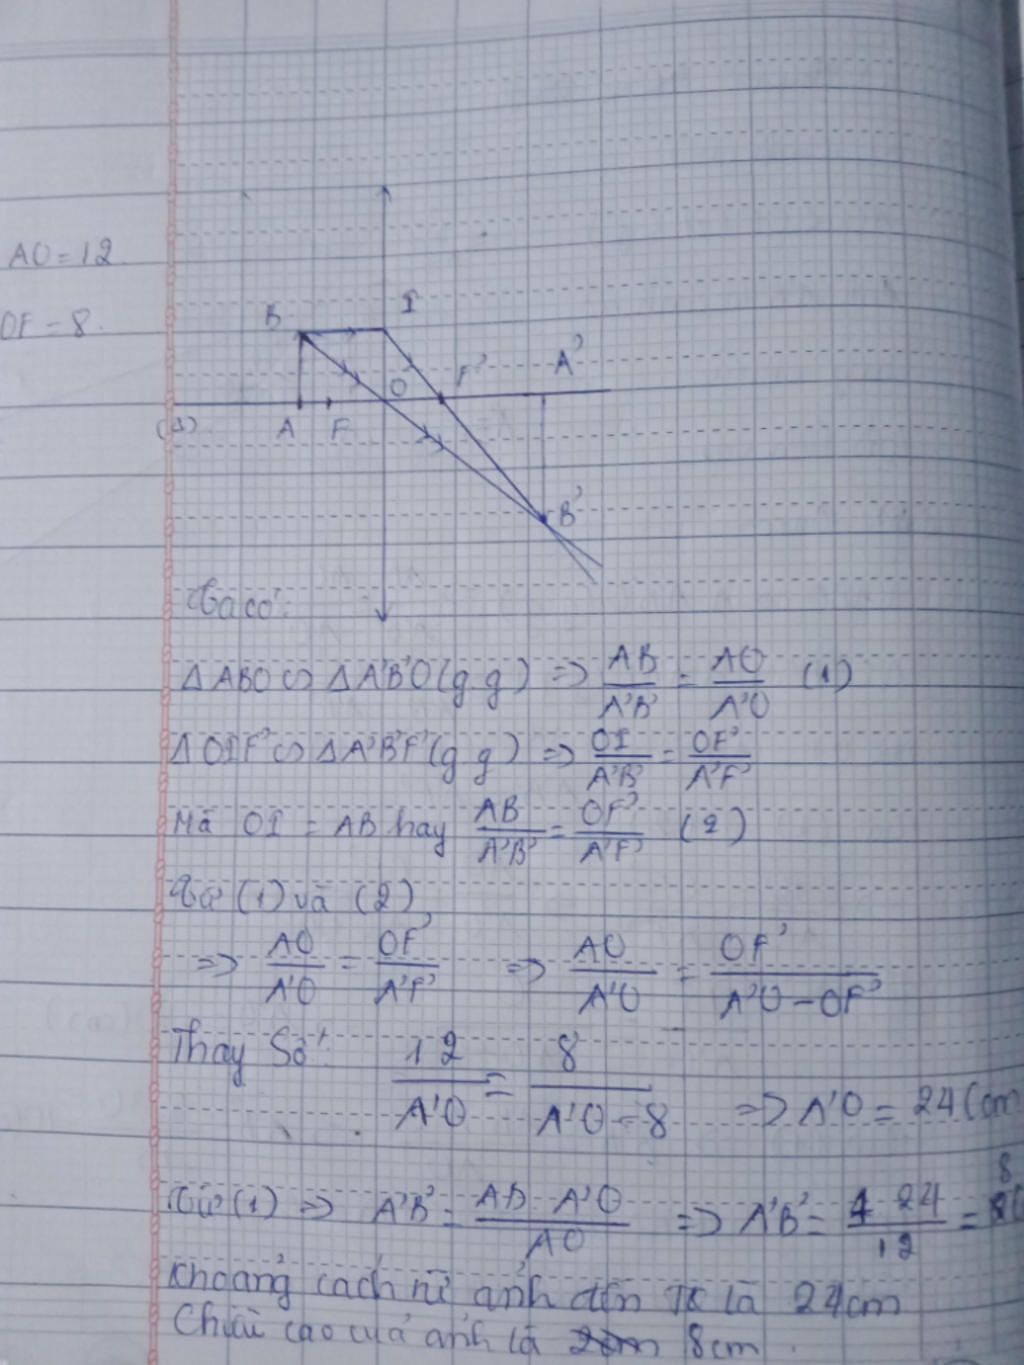 AO = 12
OF = 8.
B I
O F' A'
(Δ) A F
B'
Ta có:
Δ ABO ∽ Δ A'B'O (g g) => AB/A'B' = AO/A'O (1)
Δ OIF' ∽ Δ A'B'F' (g g) => OI/A'B' = OF'/A'F'
Mà OI = AB hay AB/A'B' = OF'/A'F' (2)
Từ (1) và (2)
=> AO/A'O = OF'/A'F' => AO/A'O = OF'/A'O - OF'
Thay Số: 12/A'O = 8/A'O - 8 => A'O = 24 (cm
Từ (1) => A'B' = AB . A'O/AO => A'B' = 4 24/12 = 8
Khoảng cách từ ảnh đến TK là 24cm
Chiều cao của ảnh là 8cm